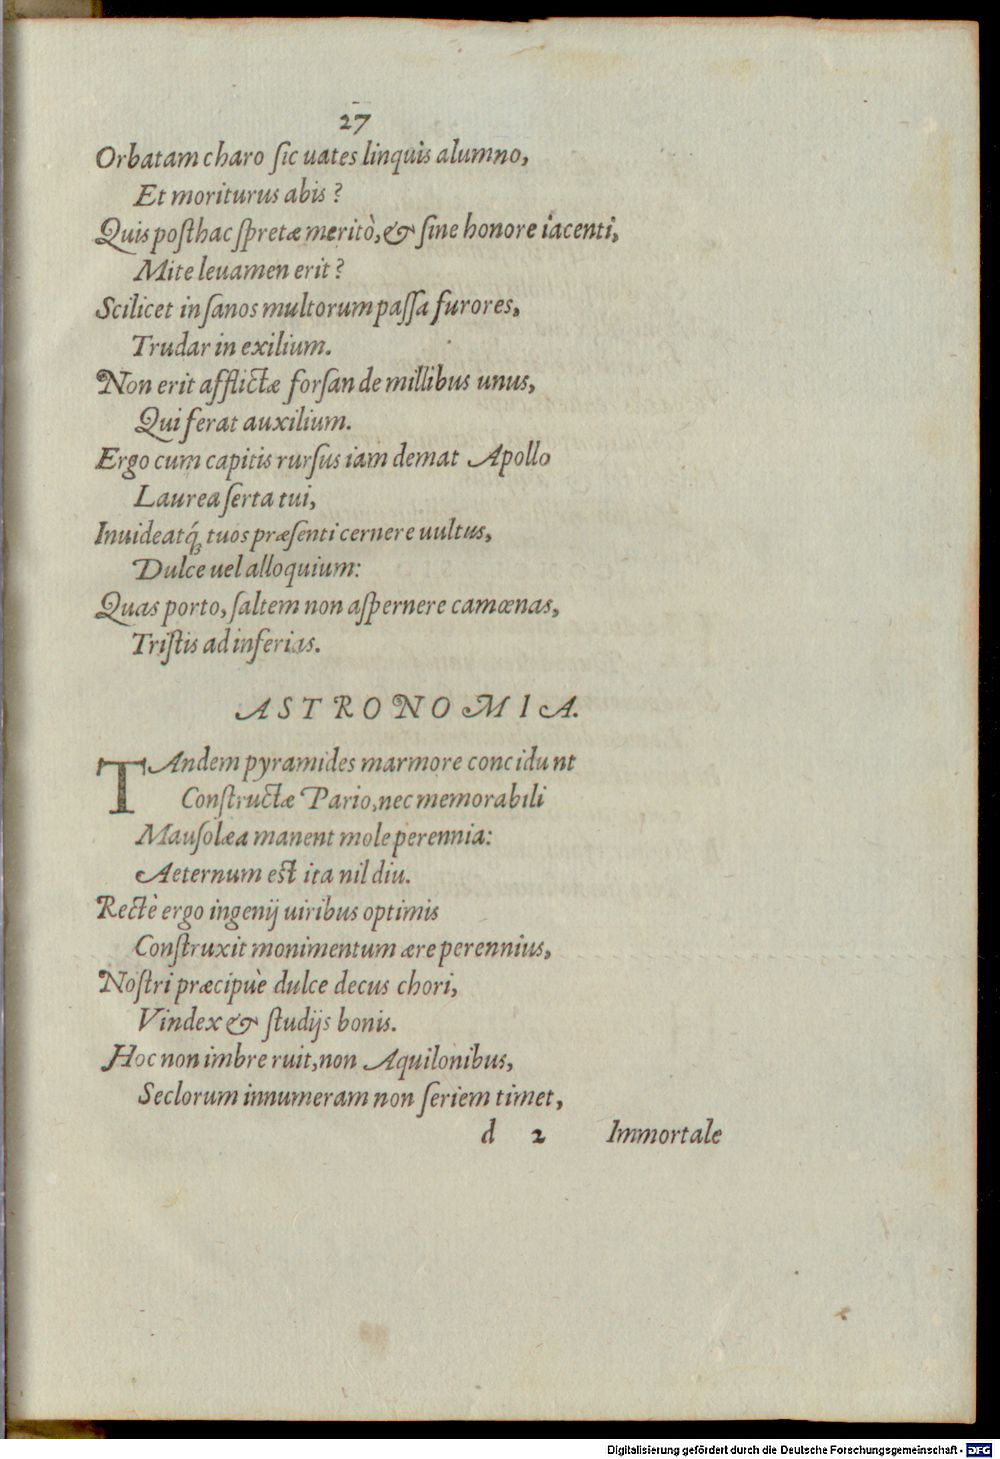 27
Orbatam charo ſic uates linquis alumno,
Et moriturus abis?
Quis poſthac ſpretæ meritò, & ſine honore iacenti,
Mite leuamen erit?
Scilicet inſanos multorum paſſa furores,
Trudar in exilium.
Non erit afflictæ forſan de millibus unus,
Qui ferat auxilium.
Ergo cum capitis rurſus iam demat Apollo
Laurea ſerta tui,
Inuideatq́ꝫ tuos præſenti cernere uultus,
Dulce uel alloquium:
Quas porto, ſaltem non aſpernere camœnas,
Triſtis ad inferias.
ASTRONOMIA.
TAndem pyramides marmore concidunt
Conſtructæ Pario, nec memorabili
Mauſolæa manent mole perennia:
Aeternum eſt ita nil diu.
Rectè ergo ingenij uiribus optimis
Conſtruxit monimentum ære perennius,
Noſtri præcipuè dulce decus chori,
Vindex & ſtudijs bonis.
Hoc non imbre ruit, non Aquilonibus,
Seclorum innumeram non ſeriem timet,
d 2 Immortale
Digitalisierung gefördert durch die Deutsche Forschungsgemeinschaft - DFG